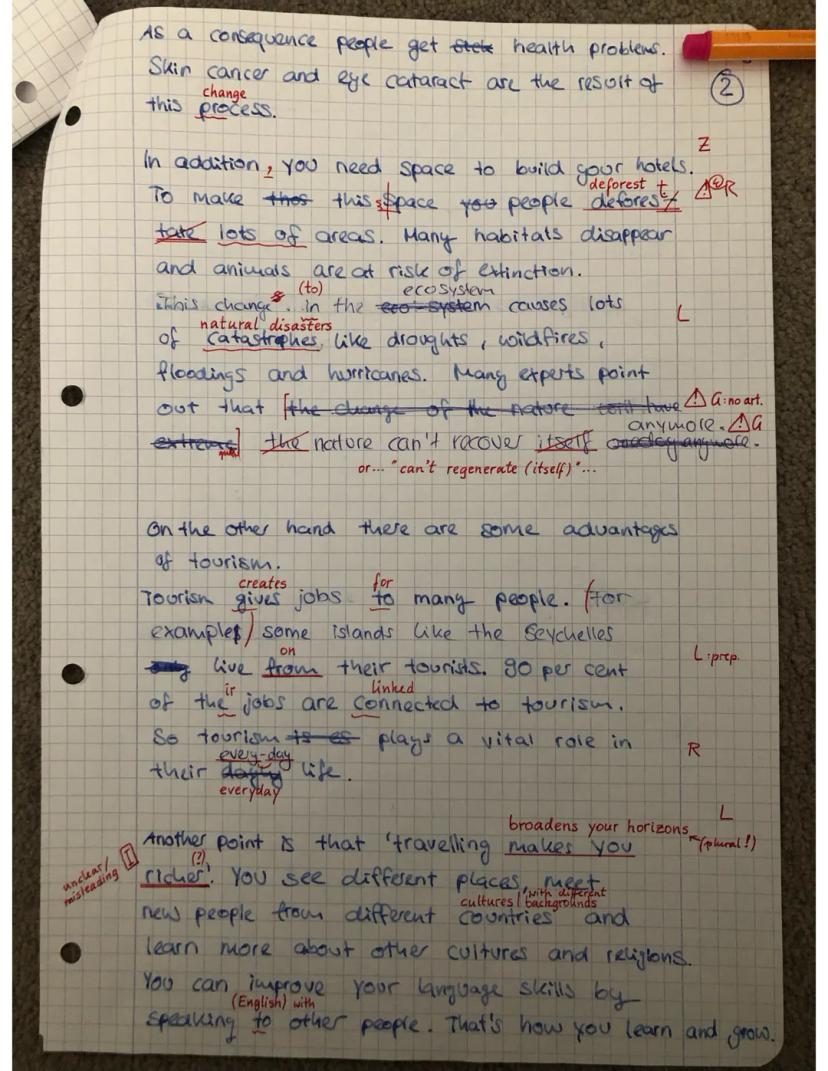 As a consequence people get health problems.
Skin cancer and eye cataract are the result of
②
change
this process.
Z
In addition, you need space to build your hotels.
deforest t
To make thos this space you people defores
⚠ R
tate lots of areas. Many habitats disappear
and animals are at risk of extinction.
(to) ecosystem
This changes in the eco-system causes lots
L
natural disasters
of catastrophes, like droughts, wildfires,
floodings and hurricanes. Many experts point
out that [the change of the nature will have
⚠ G: no art.
anymore. ⚠G
extreme] the nature can't recover itself anymore.
or... "can't regenerate (itself)"...
On the other hand there are some advantages
of tourism.
creates for
Tourism gives jobs to many people. (For
example) some islands like the Seychelles
on
only live from their tourists. 90 per cent
L: prep.
ir linked
of the jobs are connected to tourism.
So tourism is es plays a vital role in
R
every-day
their life.
everyday
L
broadens your horizons
(plural!)
Another point is that 'travelling makes you
unclear/
misleading I
(?)
richer'. You see different places, meet
cultures/ with different
backgrounds
new people from different countries and
learn more about other cultures and religions.
You can improve your language skills by
(English) with
speaking to other people. That's how you learn and grow.